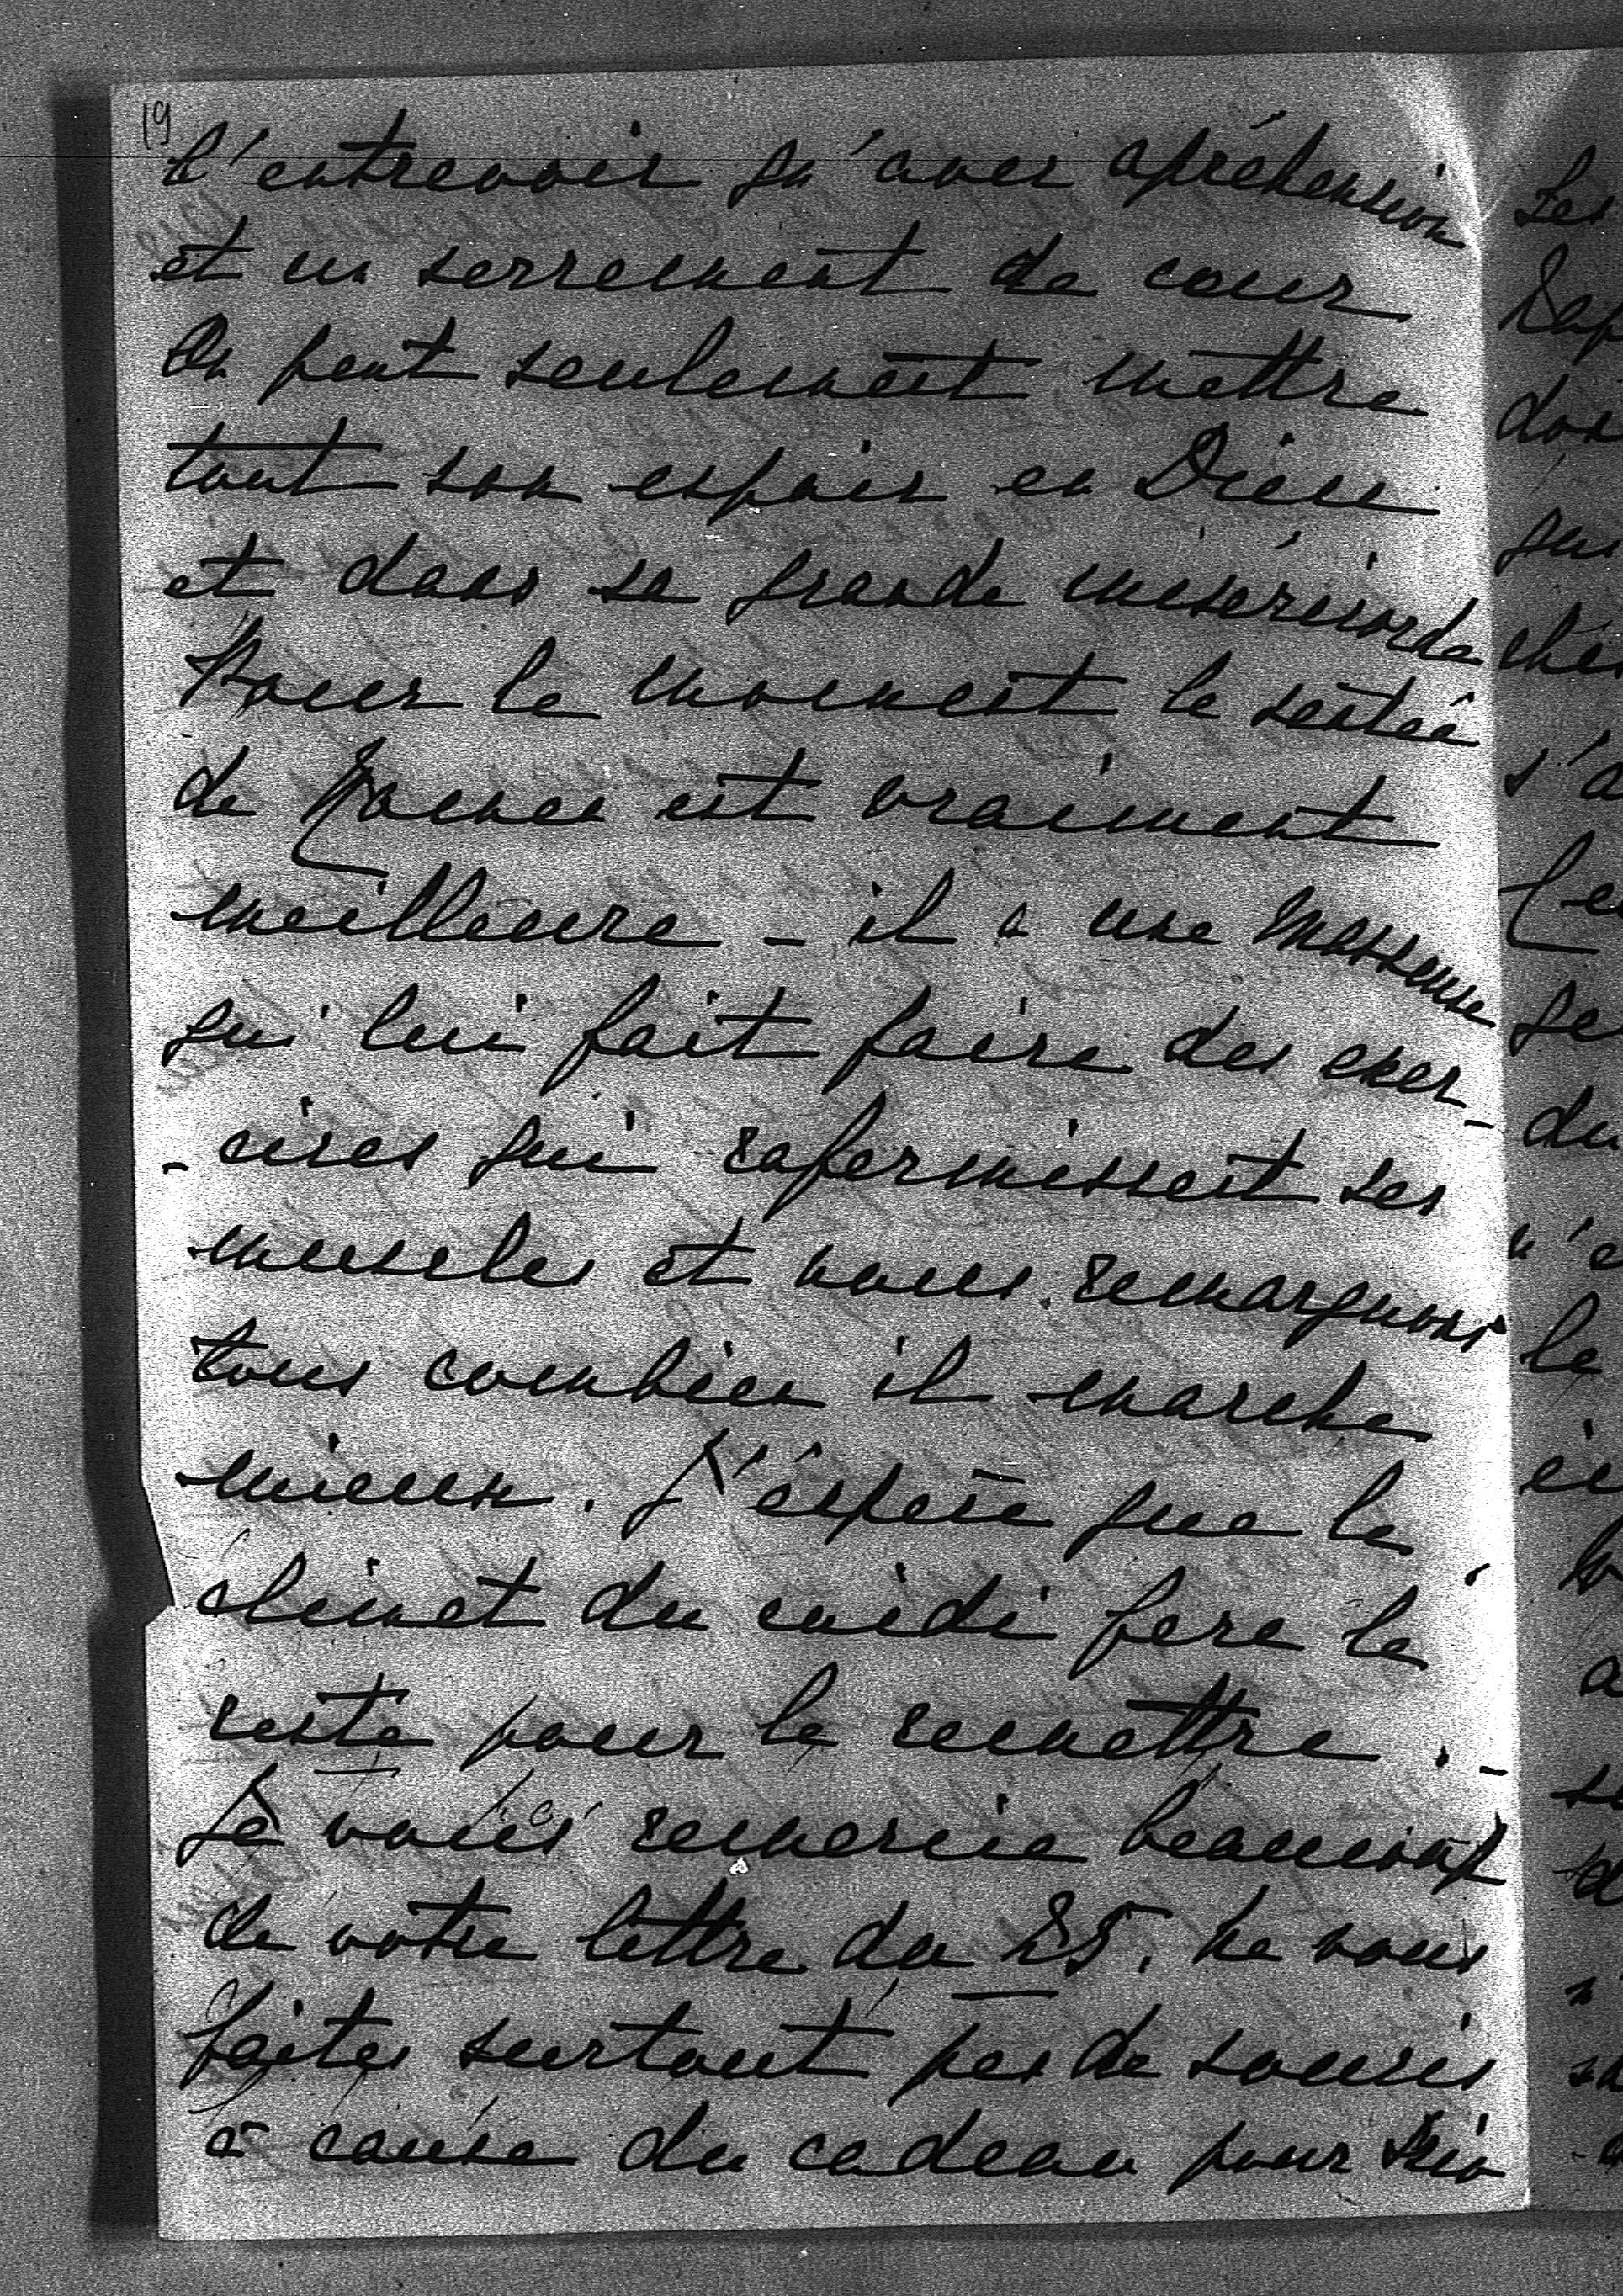 19
l'entrevoir qu'avec apréhension
et un serrement de cœur
On peut seulement mettre
tout son espoir en Dieu
et dans sa grande miséricorde
Pour le moment la santée
de est vraiment
meilleure - il a une masseuse
qui lui fait faire des exer-
-cices qui rafermissent ses
muscles et nous remarquons
tous combien il marche
mieux. J'éspère que le
climat du midi fera le
reste pour le remettre. -
Je vous remercie beaucoup
de votre lettre du 25. Ne vous
faites surtout pas de soucis
à cause du cadeau pour